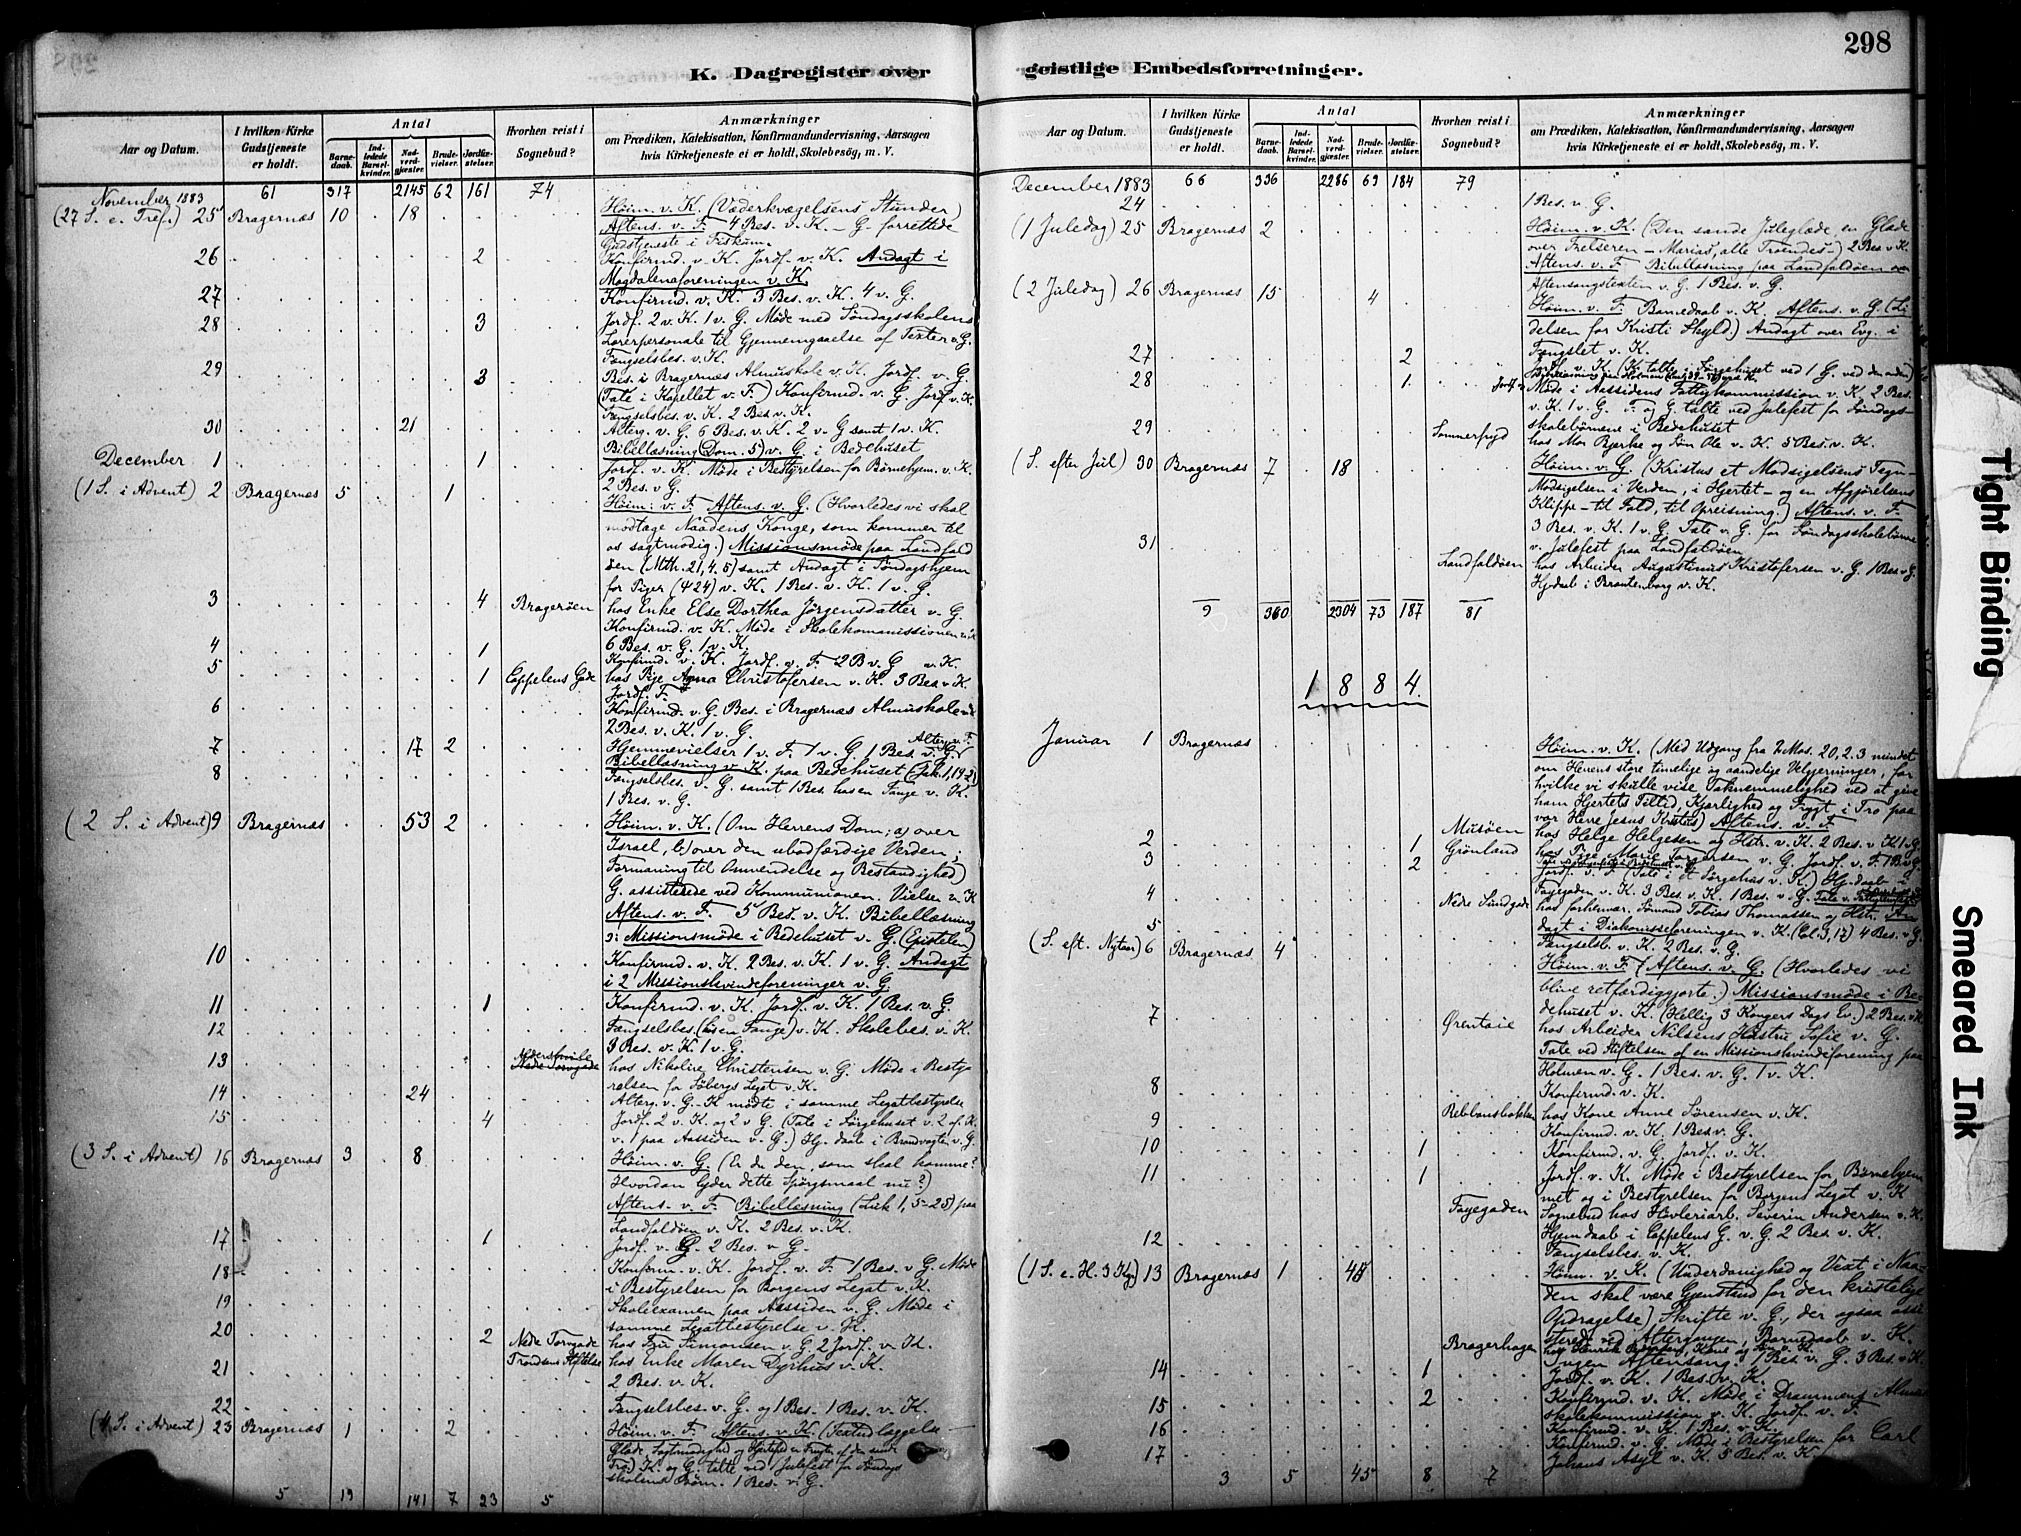 298
K. Dagregister over geistlige Embedsforretninger.
Aar og Datum.
I hvilken Kirke Gudstjeneste er holdt.
Antal
Barnedaab.
Indledede Barselkvinder.
Nadverdgjæster.
Brudevielser.
Jordfæstelser.
Hvorhen reist i Sognebud?
Anmærkninger
om Prædiken, Katekisation, Konfirmandundervisning, Aarsagen
hvis Kirketjeneste ei er holdt, Skolebesøg, m. V.
November 1883 61 317 2145 62 161 74
(27 S. e. Tref.) 25 Bragernæs 10 18 Høim. v. K. (Vederkvægelsens Stunder)
Aftens. v. F. 4 Bes. v. K. - G forrettede
Gudstjeneste i Fiskum.
26 2 Konfirmd. v. K. Jordf. v. K. Andagt i
Magdalenaforeningen v. K.
27 Konfirmd. v. K. 3 Bes. v. K. 4 v. G.
28 3 Jordf. 2 v. K. 1 v. G. Møde med Søndagsskolens
Lærerpersonale til Gjennemgaaelse af Texter v. G.
Fængselsbes. v. K.
29 3 Bes. i Bragernæs Almuskole v. K. Jordf. v. G.
(Tale i Kapellet v. F.) Konfirmd. v. G. Jordf. v. K.
Fængselsbes. v. K. 2 Bes. v. K.
30 21 Alterg. v. G. 6 Bes. v. K. 2 v. G samt 1 v. K.
Bibellæsning (Dom. 5) v. G. i Bedehuset
December 1 1 Jordf. v. K. Møde i Bestyrelsen for Børnehjem. v. K.
2 Bes. v G.
(1 S. i Advent) 2 Bragernæs 5 1 Høim: v. F. Aftens. v. G. (Hvorledes vi skal
modtage Naadens Konge, som kommer til
os sagtmodig.) Missionsmøde paa Landfald
øen (Mth. 21, 4. 5) samt Andagt i Søndagshjem
for Piger (424) v. K. 1 Bes. v. K. 1 v. G.
3 4 Bragerøen hos Enke Else Dorthea Jørgensdatter v. G.
Konfirmd. v. K. Møde i Skolekommissionen v. K
6 Bes. v. G. 1 v. K.
4 1 Konfirmd. v. K. Jordf. v. F. 2 B v. G v. K.
5 1 Cappelens Gade hos Pige Anna Christofersen v. K. 3 Bes v. K.
Jordf. F.
6 Konfirmd. v. G. Bes. i Bragernæs Almuskole v. K
2 Bes. v. K. 1 v. G.
7 17 2 Hjemmevielser 1 v. F. 1 v. G. 1 Bes. v. G. Alterg. v. F.
Bibellæsning v. K. paa Bedehuset (Jak. 1, 19-2)
8 Fængselsbes. v. G. samt 1 Bes. hos en Fange v. K.
1 Bes. v. G.
(2 S. i Advent) 9 Bragernæs 53 2 Høim. v. K. (Om Herrens Dom; a) over
Israel, b) over den ubodfærdige Verden;
Formaning til Omvendelse og Bestandighed)
G. assisterede ved Kommunionen. Vielsen v. K
Aftens. v. F. 5 Bes. v. K. Bibellæsning
Missionsmøde i Bedehuset v. G. (Epistelen)
10 Konfirmd. v. K. 2 Bes. v. K. 1 v. G. Andagt
i 2 Missionskvindeforeninger v. G.
11 1 Konfirmd. v. K. Jordf. v. K. 1 Bes. v. G.
12 Fængselsbes. (hos en Fange) v. K. Skolebes. v. K.
3 Bes. v. K. 1 v. G.
13 Nedre Torvgade hos Nikoline Christensen v. G. Møde i Besty
relsen for Søbergs Legat v. K.
14 24 Alterg. v. G. K mødte i samme Legatbestyrelse
15 4 Jordf. 2 v. K. og 2 v G. (Tale i Sørgehuset v. 2 af K.
v. 1 paa Aassiden v. G.) Hj. daab i Brandvagten v. G.
(3 S. i Advent) 16 Bragernæs 3 8 Høim. v. G. (Er du den, som skal komme?
Hvordan lyder dette Spørgsmaal nu?)
Aftens. v. F. Bibellæsning (Luk 1, 5-25) paa
Landfaldøen v. K. 2 Bes. v. K.
17 1 Jordf. v. G. 2 Bes. v G.
18 Konfirm. v. K. Jordf. v. F. 1 Bes. v G. Møde
i Bestyrelsen for Borgens Legat v. K.
19 Skoleexamen paa Aassiden v. G. Møde i
samme Legatbestyrelse v. K.
20 2 Nedre Torvgade hos Fru Simonsen v. G. 2 Jordf. v. K.
21 Trondsens Stiftelse hos Enke Maren Dyrhus v. K.
2 Bes. v. K.
22 Fængselsbes. v. G. og 1 Bes. 1 Bes. v. K.
(4 S. i Advent) 23 Bragernæs 1 2 Høim. v. F. Aftens. v. K. (Textudlæggelse
Glæde, Sagtmodighed og Hjertefred en Frugt af den sande
Tro) K. og G. talte ved Julefest for Søndags
skolens Børn. 1 Bes. v. G.
5 19 141 7 23 5
Aar og Datum.
I hvilken Kirke Gudstjeneste er holdt.
Antal
Barnedaab.
Indledede Barselkvinder.
Nadverdgjæster.
Brudevielser.
Jordfæstelser.
Hvorhen reist i Sognebud?
Anmærkninger
om Prædiken, Katekisation, Konfirmandundervisning, Aarsagen
hvis Kirketjeneste ei er holdt, Skolebesøg, m. V.
December 1883 66 336 2286 69 184 79
24 1 Bes. v. G.
(1 Juledag) 25 Bragernæs 2 Høim. v. K. (Den sande Juleglæde en Glæde
over Frelseren - Marias, alle Troendes -) 2 Bes v. K.
Aftens. v. F. Bibellæsning paa Landfaldøen over
Aftensangstexten v. G. 1 Bes. v. G.
(2 Juledag) 26 Bragernæs 15 4 Høim. v. F. Barnedaab v. K. Aftens. v. G. (Li
delsen for Kristi Skyld.) Andagt over Evg. i
Fængslet v. K.
27 2 Jordf. v. K. (K. talte i Sørgehuset ved 1 G. ved den anden)
28 1 Møde i Aassidens Fattigkommission v. K. 2 Bes.
v. K. 1 v. G. F. og G. talte ved Julefest for Søndags-
skolebørnene i Bedehuset
29 Sommerfryd hos Mor Bjerke og Søn Ole v. K. 5 Bes. v. K.
(S. efter Jul) 30 Bragernæs 7 18 Høim. v. G. (Kristus et Modsigelsens Tegn -
Modsigelsen i Verden, i Hjertet - og en Afgjørelsens
Klippe - til Fald, til Opreisning.) Aftens. v. F.
3 Bes. v. K. 1 v. G. Tale v. G. for Søndagsskolebørne
v. Julefest paa Landfaldøen
31 Landfaldøen hos Arbeider Augustinus Kristofersen v. G. 1 Bes v. G.
Hj. daab i Brantenborg v. K.
9 360 2304 73 187 81
1884.
Januar 1 Bragernæs Høim. v. K. (Med Udgang fra 2 Mos. 20, 2. 3 mindet
om Herrens store timelige og aandelige Velgjerninger, for
hvilke vi skulle vise Taknemmelighed ved at give
ham Hjertets Tillid, Kjærlighed og Frygt i Tro paa
vor Herre Jesus Kristus) Aftens. v. F.
2 1 Musøen hos Helge Helgesen og Hstr. v. K. 2 Bes. v K. 1 v. G.
3 2 Grønland hos Pige Marie Torgersen v. G. Jordf. v. F. 1 B v. G.
Jordf. v. F. (Tale i et Sørgehus v. K.) Hj. daab i
4 Fayegaden v. K. 3 Bes. v. K. 1 Bes. v. G.
5 Nedre Sundgade hos forhenvær. Sømand Tobias Thomassen og Hstr. An
dagt i Diakonisseforeningen v. K. (Col. 3, 17) 4 Bes. v. G.
Fængselsb. v. K. 2 Bes. v. G.
(S. eft. Nytaar) 6 Bragernæs 4 Høim. v. F. Aftens. v. G. (Hvorledes vi
blive retfærdiggjorte.) Missionsmøde i Be
dehuset v. K. (Hellig 3 Kongers Dags Ev.) 2 Bes. v. K
7 Ørentoie hos Arbeider Nilsens Hustru Sofie v. G.
Tale ved Stiftelsen af en Missionskvindeforening paa
Holmen v. G. 1 Bes. v. G. 1 v. K.
8 Konfirmd. v. K.
9 Rebbansbakken hos Kone Anne Sørensen v. K.
Konfirmd. v. K. 1 Bes. v. G.
10 1 Konfirmd. v. G. Jordf. v. K.
11 1 Jordf. v. K. Møde i Bestyrelsen for Børnehjem
met og i Bestyrelsen for Borgens Legat v. K
Fayegaden Sognebud hos Høvleriarb. Severin Andersen v. K.
12 Hjemdaab i Cappelens G. v. G. 2 Bes. v. K.
Fængselsbes. v. K.
(1 S. e. H. 3 Kgr.) 13 Bragernæs 1 45 Høim. v. K. (Underdanighed og Vext i Naa-
den skal være Gjenstand for den kristelige
Opdragelse) Skrifte v. G., der ogsaa assi
sterede ved Altergangen, Barnedaab v. K.
Bragerhagen
Ingen Aftensang. 1 Bes. v. G. 3 Bes. v. K.
14 1 Jordf. v. K. 1 Bes. v. K.
15 2 Konfirmd. v. K. Møde i Drammens Almue
skolekommission v. K. Jordf. v. F.
16 Konfirmd. v. K. 1 Bes. v. K.
17 Konfirmd. v. G. Møde i Bestyrelsen for Carl
Johans Asyl v. K. 5 Bes. v. K.
3 5 45 8 7
Tight Binding
Smeared Ink